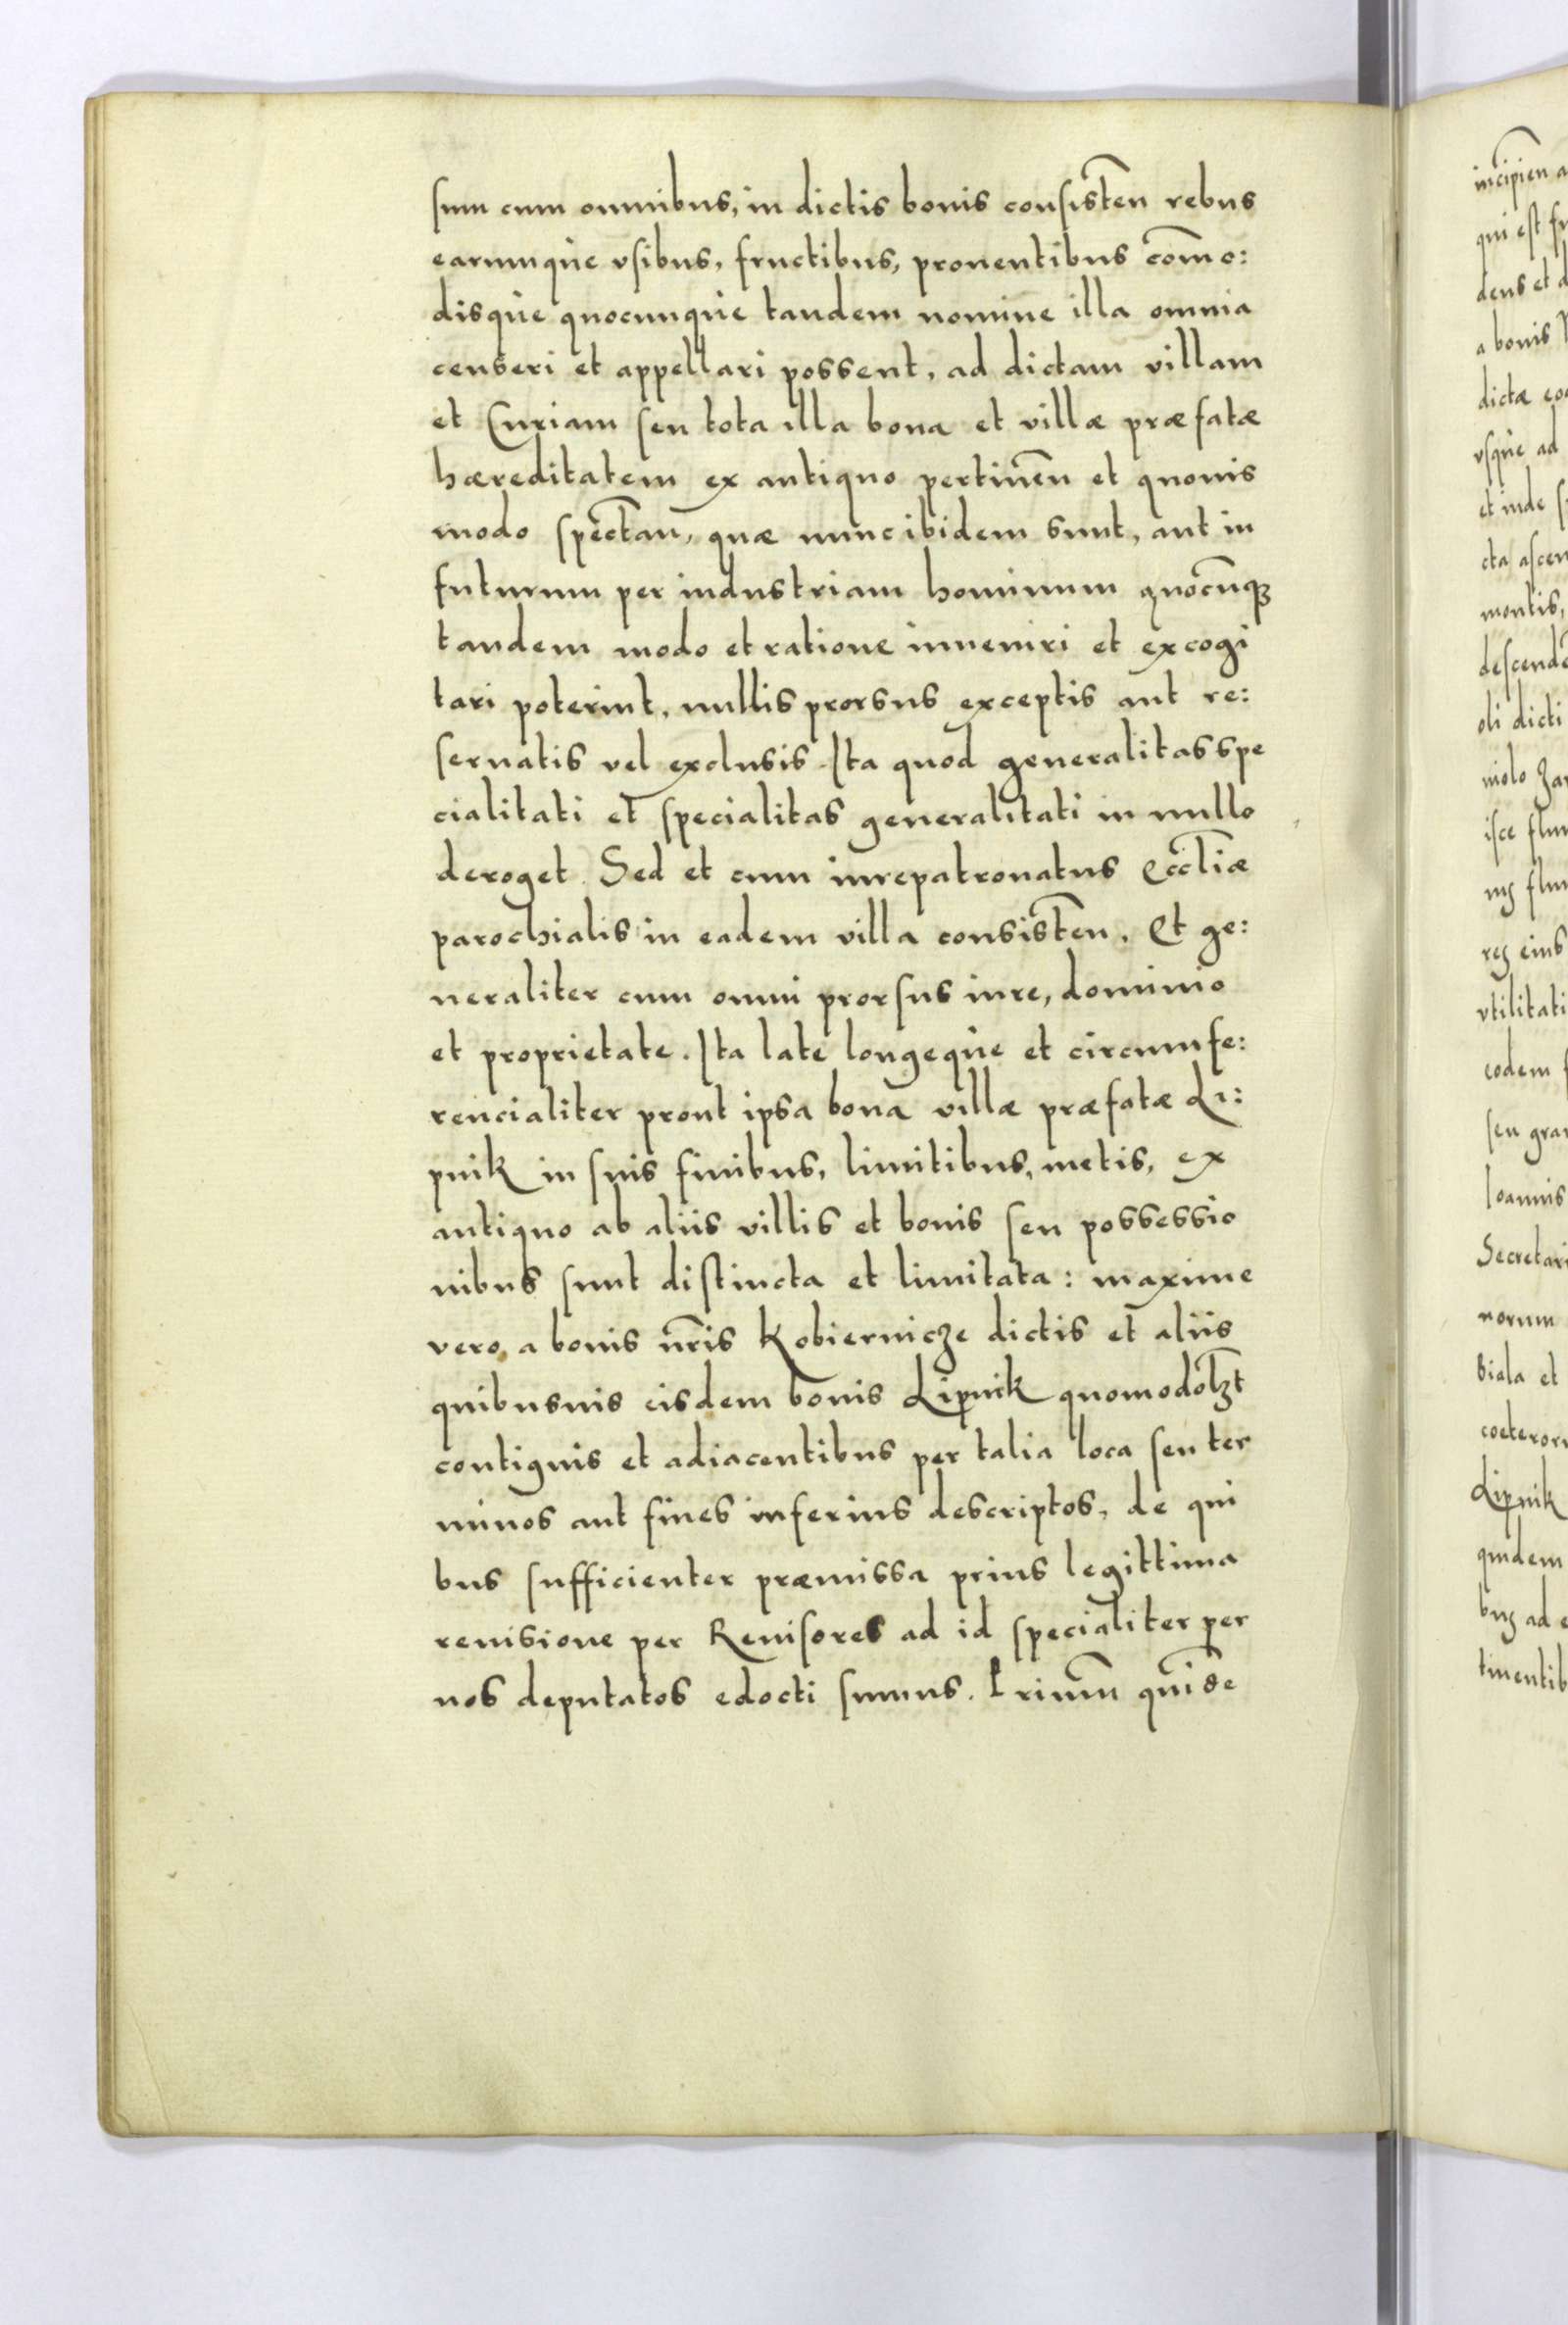 sum cum omnibus, in dictis bonis consisten̄ rebus
earumque vsibus, fructibus, prouentibus com̄o:
disque quocunque tandem nomine illa omnia
censeri et appellari possent, ad dictam villam
et Curiam seu tota illa bona et villæ præfatæ
hæreditatem ex antiquo pertinen̄ et quouis
modo spectan̄, quæ nunc ibidem sunt, aut in
futurum per industriam hominum quocūqꝫ
tandem modo et ratione inueniri et excogi
tari poterint, nullis prorsus exceptis aut re:
seruatis vel exclusis. Ita quod generalitas spe
cialitati et specialitas generalitati in nullo
deroget. Sed et cum iurepatronatus Eccl̄iæ
parochialis in eadem villa consisten̄. Et ge:
neraliter cum omni prorsus iure, dominio
et proprietate. Ita late longeque et circumfe:
rencialiter prout ipsa bona villæ præfatæ Li:
pnik in suis finibus, limitibus, metis, ex
antiquo ab aliis villis et bonis seu possessio
nibus sunt distincta et limitata: maxime
vero a bonis nr̄is Kobiernicze dictis et aliis
quibusuis eisdem bonis Lipnik quomodolꝫt
contiguis et adiacentibus per talia loca seu ter
minos aut fines inferius descriptos, de qui
bus sufficienter præmissa prius legittima
reuisione per Reuisores ad id specialiter per
nos deputatos edocti sumus. Primū quidē
incipien̄ a
qui est
dens et
a bonis
dictæ
vsque ad
et inde
cta
montis,
oli dicti
isce
eius
vtilitati
eodem
seu
Ioannis
norum
Biala et
Lipnik
quidem
ad